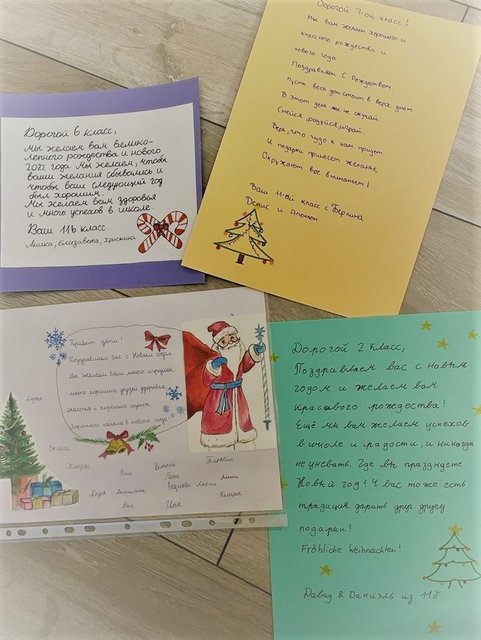 Дорогой 7-ой класс!
Мы вам желаем хорошего и
классного рождества и
нового года.
Поздравляем С Рождеством.
Пусть весь дом стоит в верх дном
В этом день же не скучай
Смейся, радуйся, играй
Верь, что чудо к вам придет
И подарки принесет желание,
Окружают вас вниманьем!
Ваш 11-ый класс с Берлина
Денис и
Дорогой 6 класс,
Мы желаем вам велико-
лепного рождества и нового
2022 года. Мы желаем, чтобы
ваши желания сбывались и
чтобы ваш следующий год
был хорошим.
Мы желаем вам здоровья
и много успехов в школе
Ваш 11б класс.
Елизавета, Кристина
Привет дети!
Поздравляем вас с Новым годом.
Мы желаем вам много игрушек,
много хороших друзей здоровья,
счастья и хороших оценок.
Хорошего начала в новом году!
Яна
Лени
Леони
Яна
Дорогой 2 класс,
Поздравляем вас с новым
годом и желаем вам
Красивого рождества!
Ещё мы вам желаем успехов
в школе и радости, и никогда
не уневать. Где вы празднуете
Новый год? У вас тоже есть
традиция дарить друг другу
подарки?
Fröhliche Weihnachten!
Давид & Даниэль из 11б